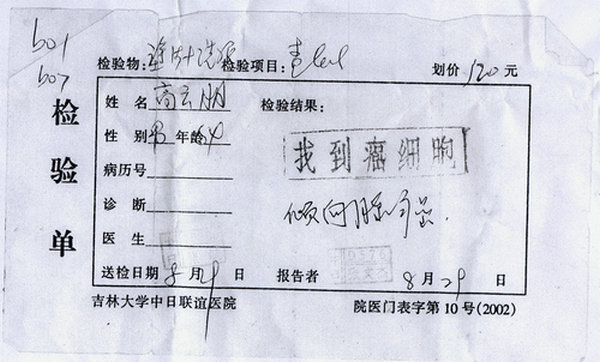 601
607
检验单
检验物： 检验项目： 划价 120 元
姓名 高云朋 检验结果：
性别 男 年龄 64
找到癌细胞
病历号
诊断
倾向腺癌.
医生
送检日期 8 月 29 日 报告者 8 月 29 日
吉林大学中日联谊医院 院医门表字第 10 号(2002)